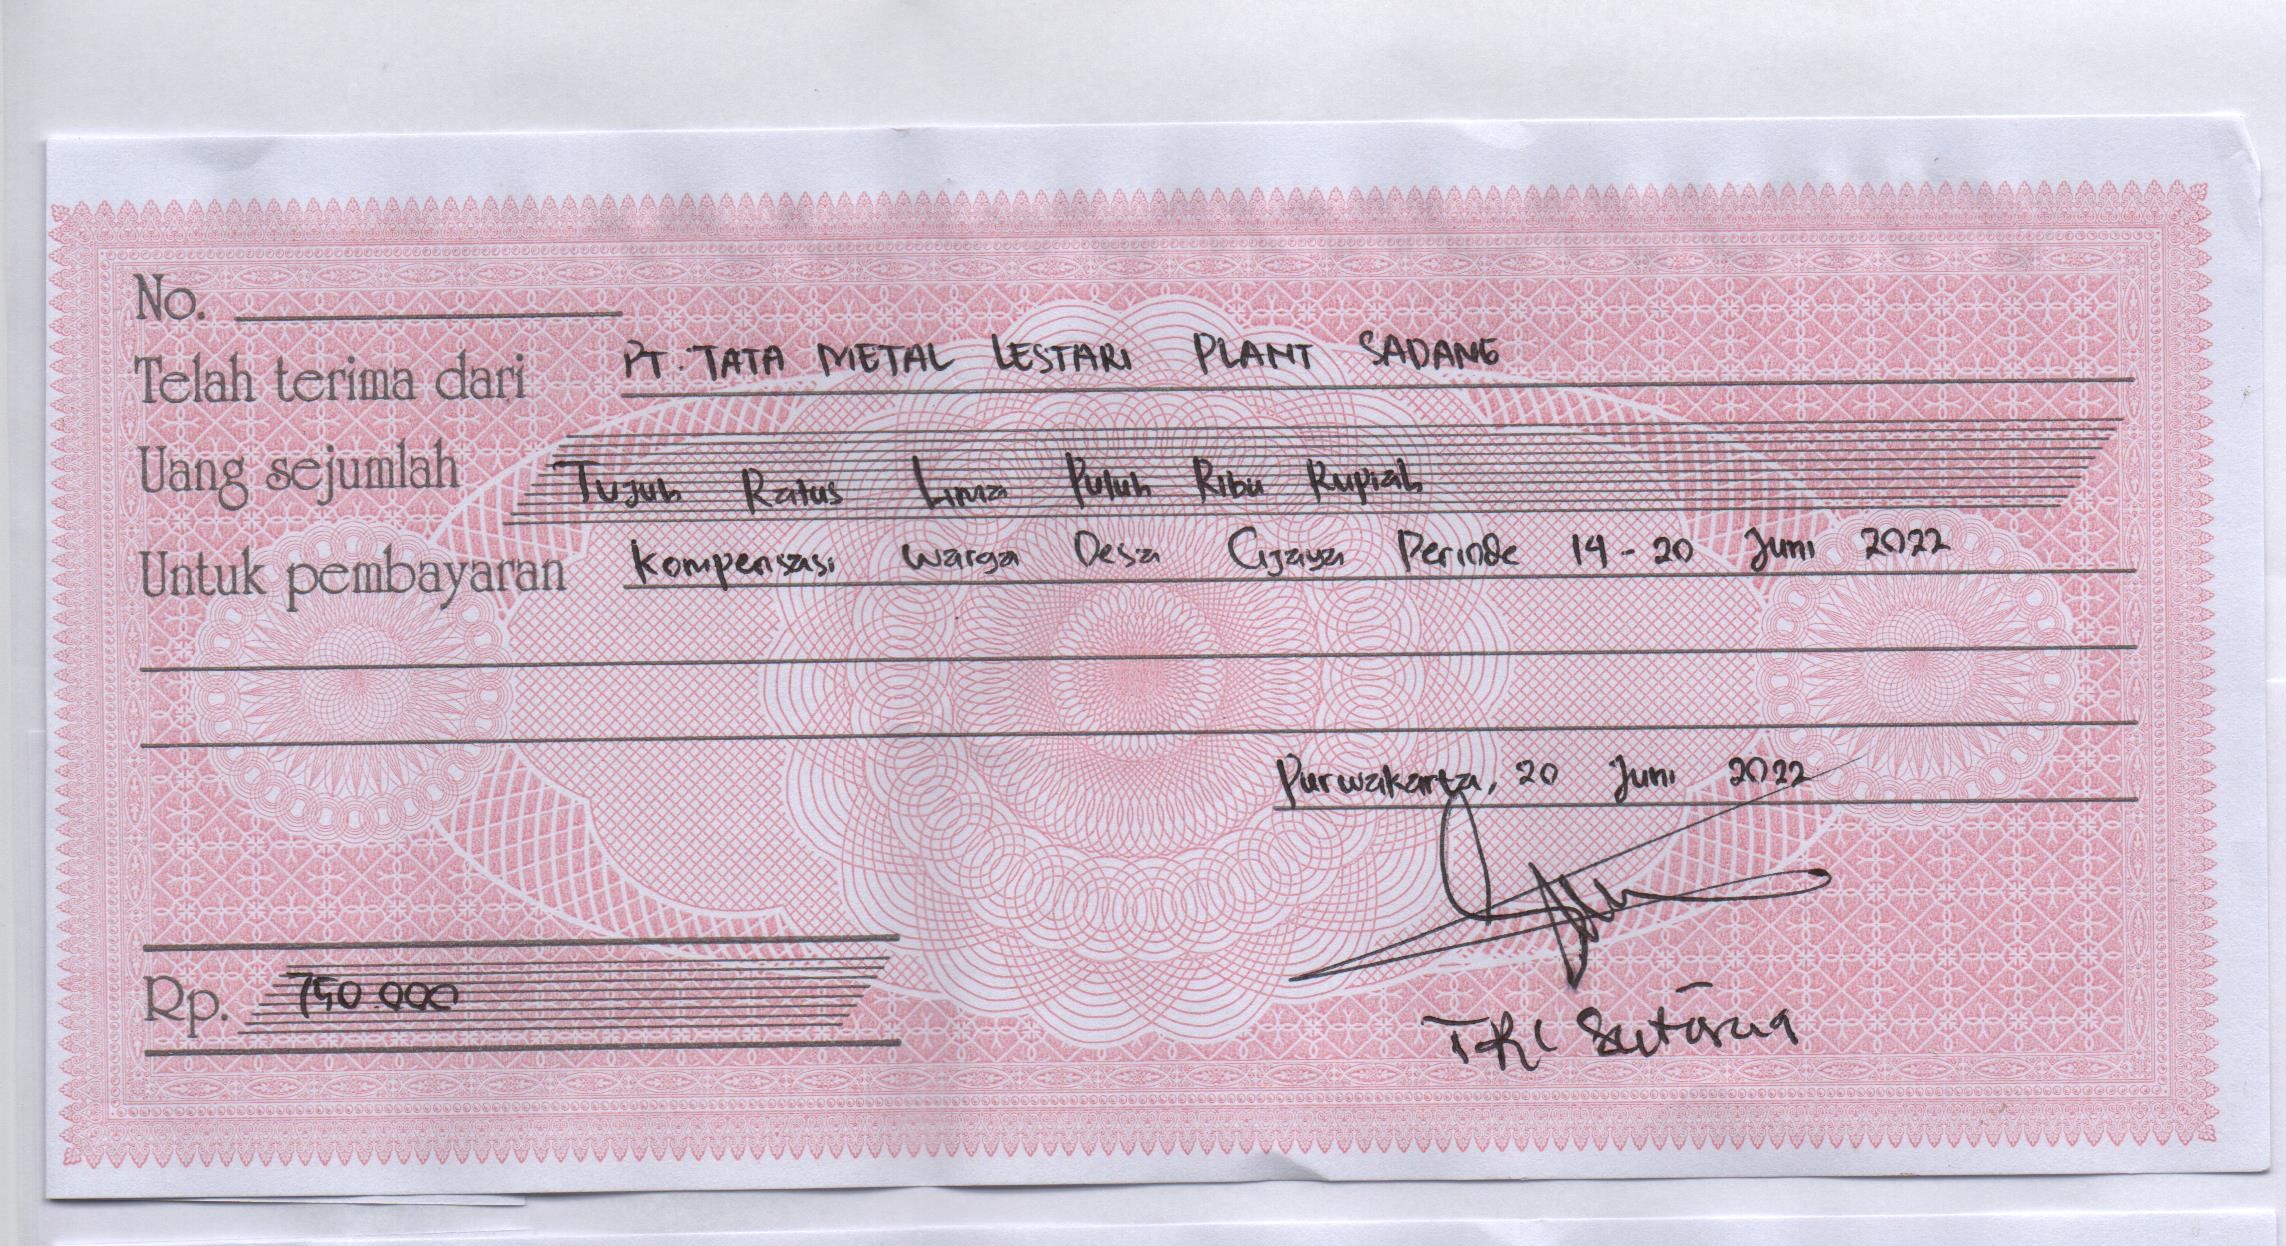 No.
Telah terima dari PT. TATA METAL LESTARI PLANT SADANG
Uang sejumlah Tujuh Ratus Lima Puluh Ribu Rupiah
Untuk pembayaran Kompensasi Warga Desa Cijaya Periode 14 - 20 Juni 2022
Purwakarta, 20 Juni 2022
Rp. 750.000
TRI Sutisna